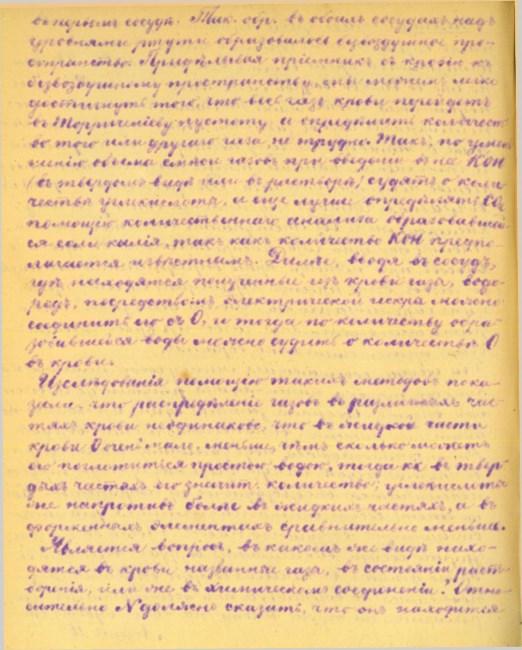 въ первомъ сосудѣ. Так. обр. въ обоихъ сосудахъ надъ
уровнями ртути образовалось безвоздушное про-
странство. Придѣлывая пріемникъ съ кровью къ
безвоздушному пространству, мы можемъ легко
достигнуть того, что весь газъ крови перейдетъ
въ Торричеліеву пустоту, а опредѣлить количест-
во того или другаго газа не трудно. Такъ, по умень-
шенію объема смѣси газовъ при введеніи въ нее KOH
(въ твердомъ видѣ или въ растворѣ) судятъ о коли-
чествѣ углекислоты, а еще лучше опредѣлять съ
помощью количественнаго анализа образовавшей-
ся соли калія, такъ какъ количество KOH предпо-
лагается извѣстнымъ. Далѣе, вводя въ сосудъ,
гдѣ находятся полученные изъ крови газы, водо-
родъ, посредствомъ электрической искры можно
соединить его съ O, и тогда по количеству обра-
зовавшейся воды можно судить о количествѣ O
въ крови.
Изслѣдованія помощію такихъ методовъ пока-
зали, что распредѣленіе газовъ въ различныхъ час-
тяхъ крови неодинаково, что въ жидкой части
крови O очень мало, меньше, чѣмъ сколько можетъ
его поглотиться простою водою, тогда кк въ твер-
дыхъ частяхъ его значит. количество; углекислоты
же напротивъ болѣе въ жидкихъ частяхъ, а въ
форменныхъ элементахъ сравнительно меньше.
Является вопросъ, въ какомъ же видѣ нахо-
дятся въ крови названные газы, въ состояніи раст-
воренія, или же въ химическомъ соединеніи? Отно-
сительно N должно сказать, что онъ находится